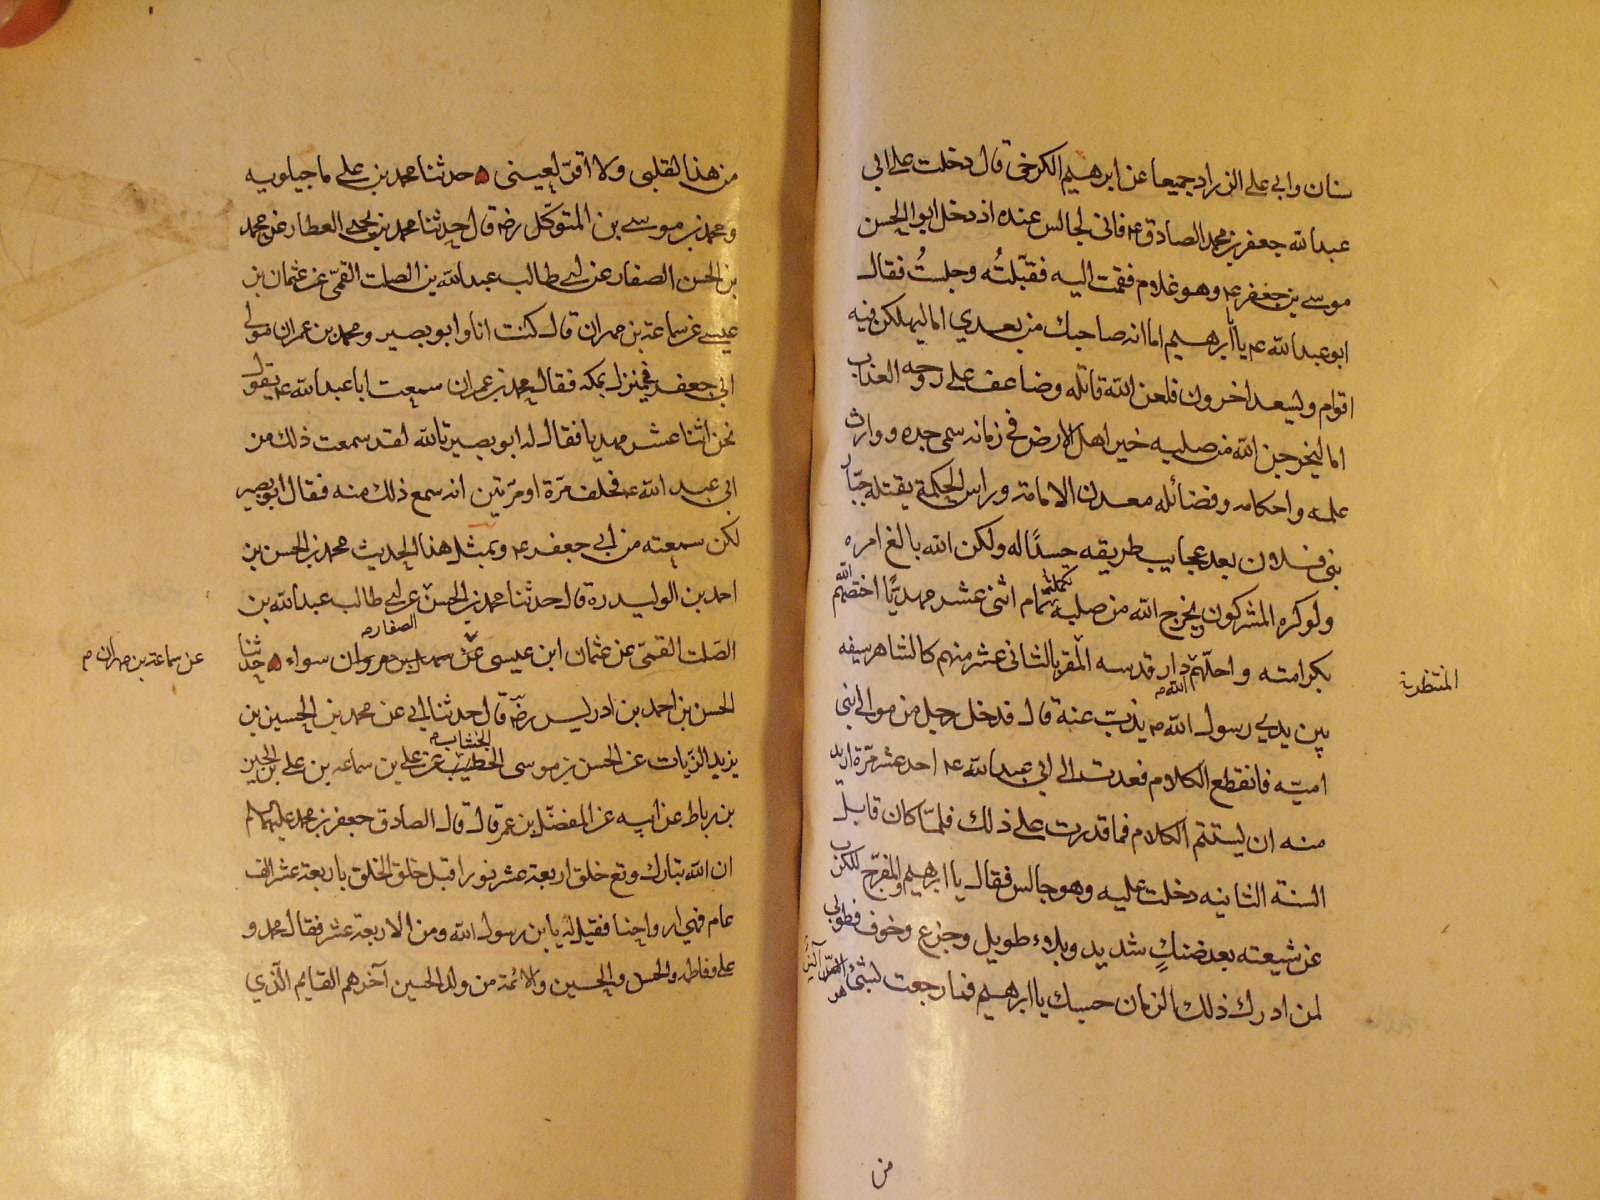 سنان وابي علي الزراد جميعا عن ابرهيم الكرخي قال دخلت على ابي
عبد الله جعفر بن محمد الصادق ع فاني لجالس عنده اذ دخل ابو الحسن
موسى بن جعفر ع وهو غلام فقمت اليه فقبّلتُه وجلستُ فقال
ابو عبد الله ع يا ابرهيم اما انه صاحبك من بعدي اما ليهلكن فيه
اقوام ويسعد اخرون فلعن الله قاتله وضاعف على روحه العذاب
اما ليخرجن الله من صلبه خير اهل الارض في زمانه سمى جده ووارث
علمه واحكامه وفضائله معدن الامامة وراس الحكمة يقتله جبّار
بني فلان بعد عجايب طريقه حسدًا له ولكن الله بالغ امره
ولو كره المشركون يخرج الله من صلبه تكملة تمام اثني عشر مهديّا اختصهم الله
بكرامته واحلّهم دار قدسه المقر بالثاني عشر منهم كالشاهر سيفه
المنتظر
بين يدي رسول الله ص يذبّ عنه قال فدخل رجل من موالي بني
اميّة فانقطع الكلام فعدت الى ابي عبد الله ع احد عشر مرّة اريد
منه ان يستتم الكلام فما قدرت على ذلك فلمّا كان قابل
السنة الثانيه دخلت عليه وهو جالس فقال يا ابرهيم المفرّج للكرب
عن شيعته بعد ضنكٍ شديد وبلاء طويل وجزع وخوف فطوبى
لمن ادرك ذلك الزمان حسبك يا ابرهيم فما رجعت بشئ
من
من هذا لقلبي ولا اقرّ لعيني حدثنا محمد بن علي ماجيلويه
ومحمد بن موسى بن المتوكّل رضه قال حدثنا محمد بن يحيى العطار عن محمد
بن الحسن الصفار عن ابي طالب عبد الله بن الصلت القمّي عن عثمان بن
عيسى عن سماعة بن مهران قال كنت انا وابو بصير ومحمد بن عمران مولى
ابي جعفر في منزل بمكه فقال محمد بن عمران سمعت ابا عبد الله ع يقول
نحن اثنا عشر مهديا فقال له ابو بصير تالله لقد سمعت ذلك من
ابي عبد الله ع فحلف مرّة او مرّتين انه سمع ذلك منه فقال ابو بصير
لكن سمعته من ابي جعفر ع وبمثل هذا الحديث محمد بن الحسن بن
احمد بن الوليد ره قال حدثنا محمد بن الحسن الصفار عن ابي طالب عبد الله بن
الصلت القمّي عن عثمان ابن عيسى عن سواء حدثنا
عن سماعة بن مهران
الحسن بن احمد بن ادريس رضه قال حدثنا ابي عن محمد بن الحسين بن
يزيد الزيات عن الحسن بن موسى الخشاب عن علي بن سماعه بن علي بن الحسين
بن رباط عن ابيه عن المفضّل بن عمر قال قال الصادق جعفر بن محمد عليهما السلام
ان الله تبارك وتع خلق اربعة عشر نورا قبل خلق الخلق باربعة عشر الف
عام فهي ارواحنا فقيل له يا بن رسول الله ومن الاربعة عشر فقال محمد و
علي وفاطمه والحسن والحسين والائمة من ولد الحسين آخرهم القايم الّذي